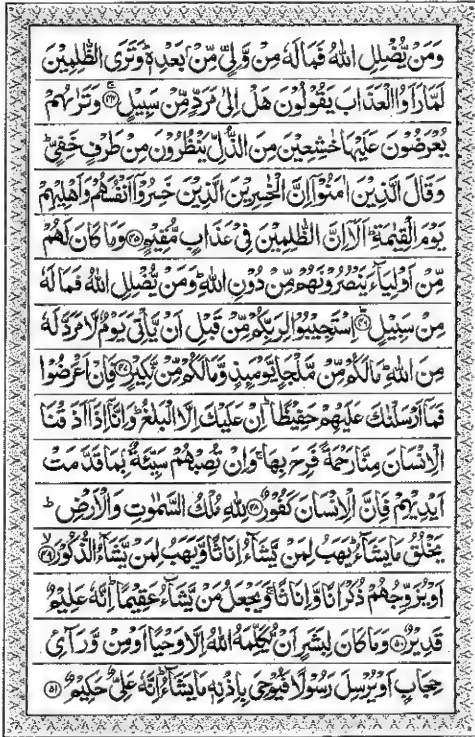 وَمَنْ يُّضْلِلِ اللّٰهُ فَمَا لَهٗ مِنْ وَّلِيٍّ مِّنْۢ بَعْدِهٖ ؕ وَتَرَى الظّٰلِمِيْنَ
لَمَّا رَاَوُا الْعَذَابَ يَقُوْلُوْنَ هَلْ اِلٰى مَرَدٍّ مِّنْ سَبِيْلٍ ﴿۴۴﴾ وَتَرٰىهُمْ
يُعْرَضُوْنَ عَلَيْهَا خٰشِعِيْنَ مِنَ الذُّلِّ يَنْظُرُوْنَ مِنْ طَرْفٍ خَفِيٍّ ؕ
وَقَالَ الَّذِيْنَ اٰمَنُوْۤا اِنَّ الْخٰسِرِيْنَ الَّذِيْنَ خَسِرُوْۤا اَنْفُسَهُمْ وَاَهْلِيْهِمْ
يَوْمَ الْقِيٰمَةِ ؕ اَلَاۤ اِنَّ الظّٰلِمِيْنَ فِيْ عَذَابٍ مُّقِيْمٍ ﴿۴۵﴾ وَمَا كَانَ لَهُمْ
مِّنْ اَوْلِيَآءَ يَنْصُرُوْنَهُمْ مِّنْ دُوْنِ اللّٰهِ ؕ وَمَنْ يُّضْلِلِ اللّٰهُ فَمَا لَهٗ
مِنْ سَبِيْلٍ ﴿۴۶﴾ اِسْتَجِيْبُوْا لِرَبِّكُمْ مِّنْ قَبْلِ اَنْ يَّاْتِيَ يَوْمٌ لَّا مَرَدَّ لَهٗ
مِنَ اللّٰهِ ؕ مَا لَكُمْ مِّنْ مَّلْجَاٍ يَّوْمَئِذٍ وَّمَا لَكُمْ مِّنْ نَّكِيْرٍ ﴿۴۷﴾ فَاِنْ اَعْرَضُوْا
فَمَاۤ اَرْسَلْنٰكَ عَلَيْهِمْ حَفِيْظًا ؕ اِنْ عَلَيْكَ اِلَّا الْبَلٰغُ ؕ وَاِنَّاۤ اِذَاۤ اَذَقْنَا
الْاِنْسَانَ مِنَّا رَحْمَةً فَرِحَ بِهَا ۚ وَاِنْ تُصِبْهُمْ سَيِّئَةٌۢ بِمَا قَدَّمَتْ
اَيْدِيْهِمْ فَاِنَّ الْاِنْسَانَ كَفُوْرٌ ﴿۴۸﴾ لِلّٰهِ مُلْكُ السَّمٰوٰتِ وَالْاَرْضِ ؕ
يَخْلُقُ مَا يَشَآءُ ؕ يَهَبُ لِمَنْ يَّشَآءُ اِنَاثًا وَّيَهَبُ لِمَنْ يَّشَآءُ الذُّكُوْرَ ﴿۴۹﴾
اَوْ يُزَوِّجُهُمْ ذُكْرَانًا وَّاِنَاثًا ۚ وَيَجْعَلُ مَنْ يَّشَآءُ عَقِيْمًا ؕ اِنَّهٗ عَلِيْمٌ
قَدِيْرٌ ﴿۵۰﴾ وَمَا كَانَ لِبَشَرٍ اَنْ يُّكَلِّمَهُ اللّٰهُ اِلَّا وَحْيًا اَوْ مِنْ وَّرَآئِ
حِجَابٍ اَوْ يُرْسِلَ رَسُوْلًا فَيُوْحِيَ بِاِذْنِهٖ مَا يَشَآءُ ؕ اِنَّهٗ عَلِيٌّ حَكِيْمٌ ﴿۵۱﴾